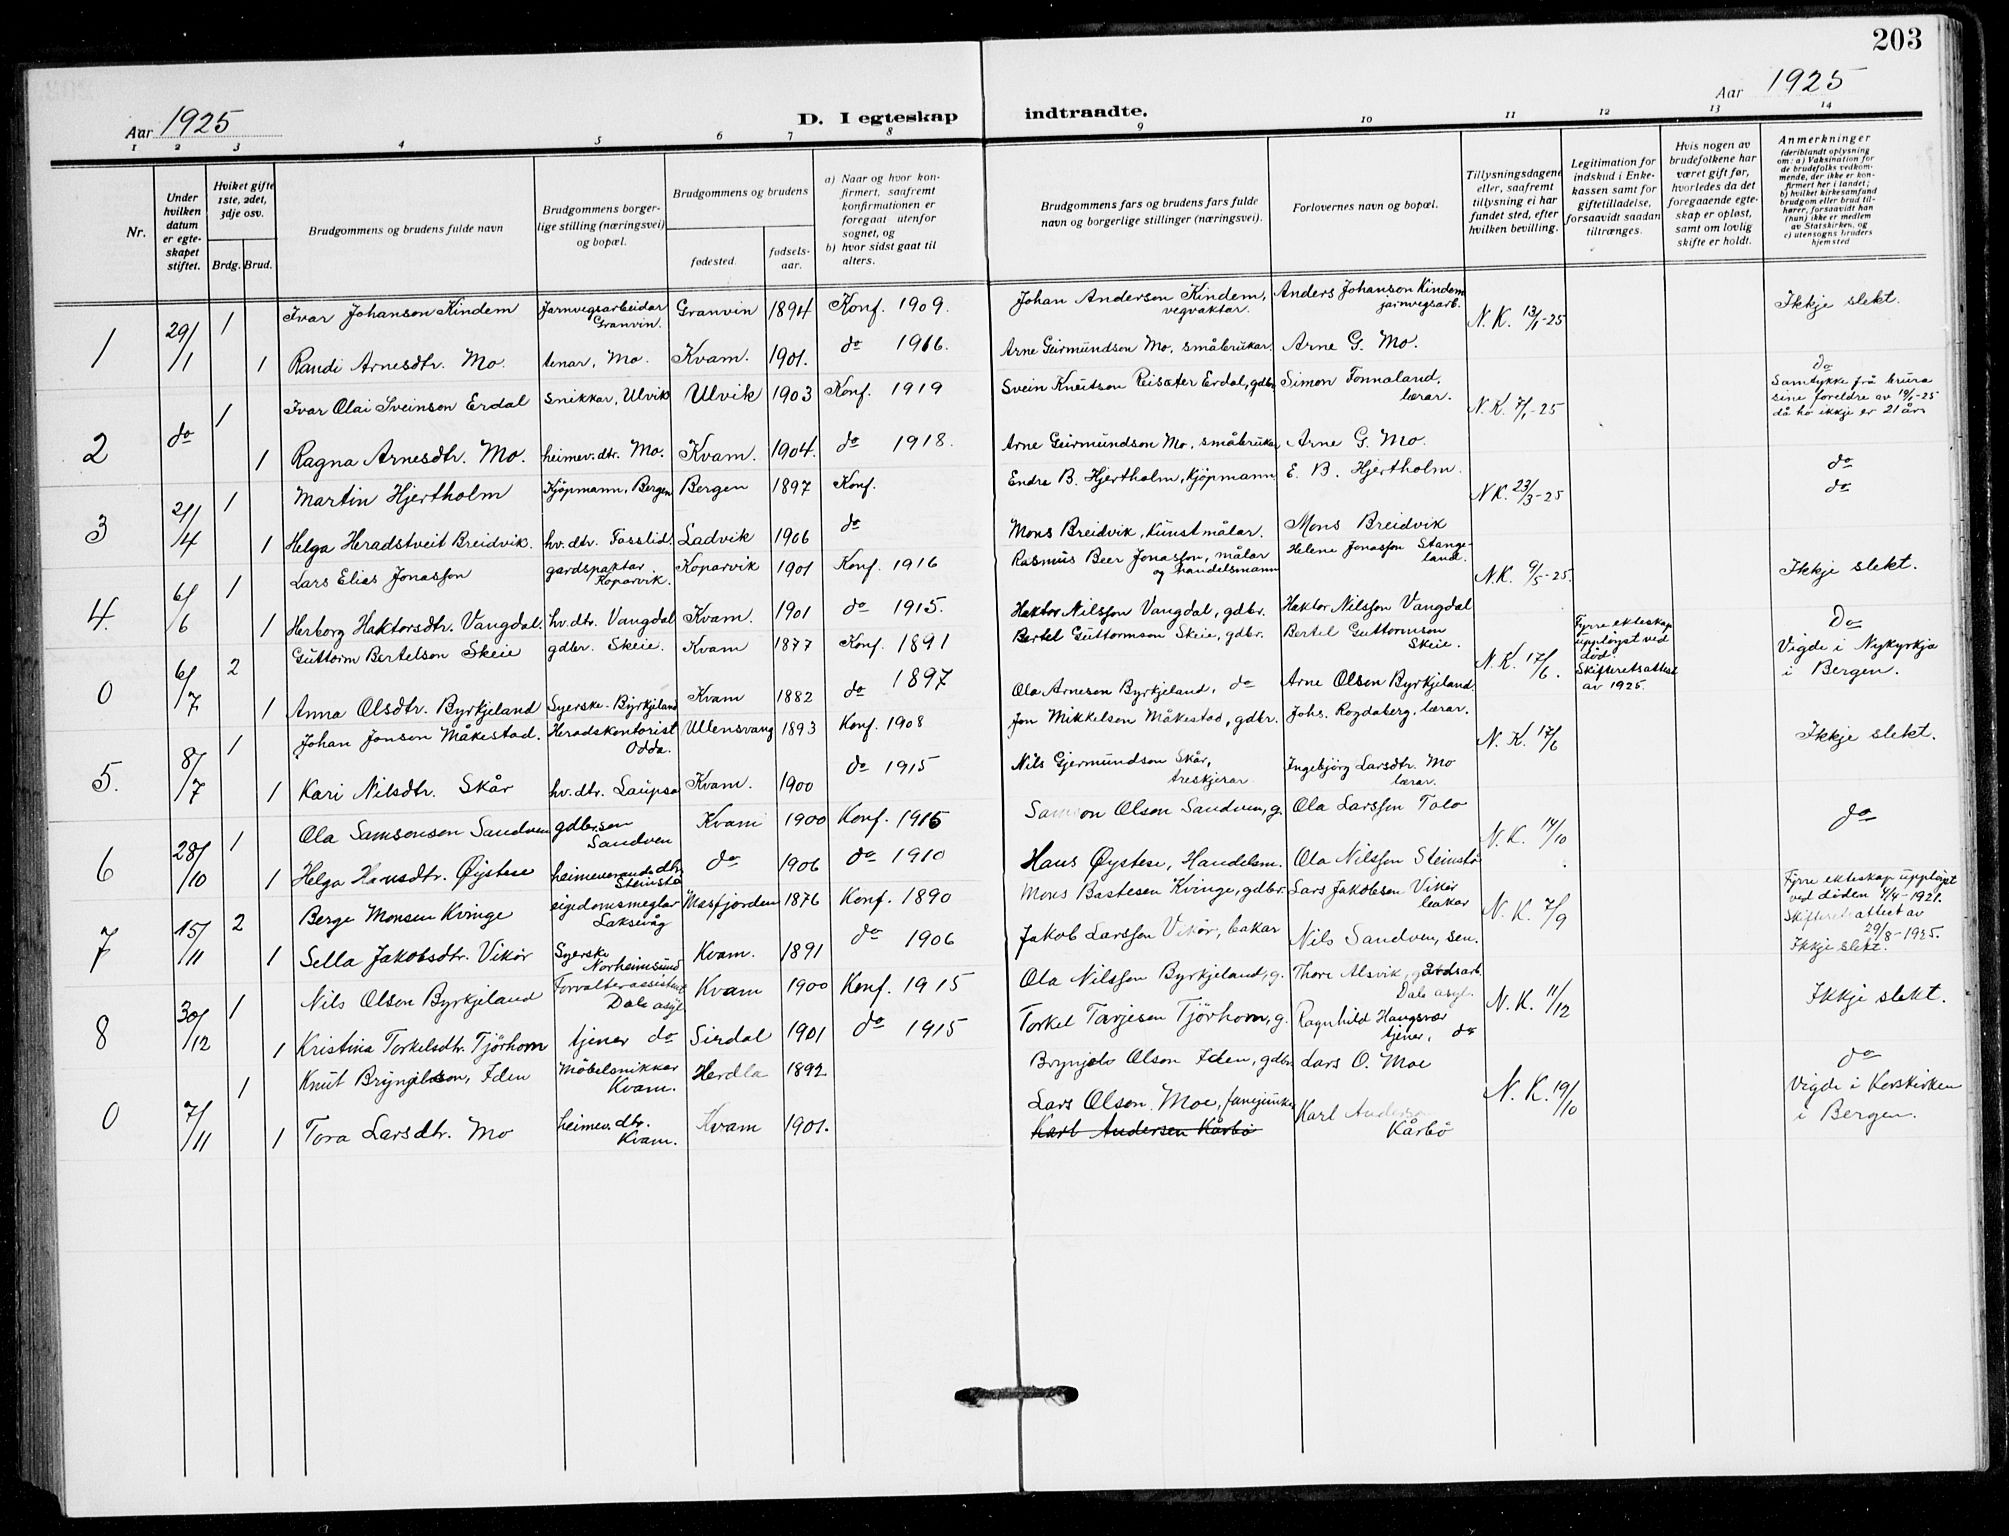 203
Aar 1925
D. I egteskap indtraadte.
Aar 1925
1 2 3 4 5 6 7 8 9 10 11 12 13 14
Nr.
Under hvilken datum er egteskapet stiftet.
Hviket gifte 1ste, 2det, 3dje osv.
Brdg. Brud.
Brudgommens og brudens fulde navn
Brudgommens borgerlige stilling (næringsvei) og bopæl.
Brudgommens og brudens
fødested.
fødselsaar.
a) Naar og hvor konfirmert, saafremt konfirmationen er foregaat utenfor sognet, og
b) hvor sidst gaat til alters.
Brudgommens fars og brudens fars fulde navn og borgerlige stillinger (næringsvei).
Forlovernes navn og bopæl.
Tillysningsdagene eller, saafremt tillysning ei har fundet sted, efter hvilken bevilling.
Legitimation for indskud i Enkekassen samt for giftetilladelse, forsaavidt saadan tiltrænges.
Hvis nogen av brudefolkene har været gift før, hvorledes da det foregaaende egteskap er opløst, samt om lovlig skifte er holdt.
Anmerkninger
(deriblandt oplysning om: a) Vaksination for de brudefolks vedkommende, der ikke er konfirmert her i landet; b) hvilket kirkesamfund brudgom eller brud tilhører, forsaavidt han (hun) ikke er medlem av Statskirken, og c) utensogns bruders hjemsted
1 29/1 1 Ivar Johanson Kindem Jarnvegsarbeidar Granvin. Granvin 1894 Konf. 1909. Johan Anderson Kindem, vegvaktar. Anders Johanson Kindem jarnvegsarb. N.K. 13/1-25 Ikkje slekt.
1 Randi Arnesdtr. Mo. tenar, Mo. Kvam. 1901. do 1916. Arne Geirmundson Mo, småbrukar. Arne G. Mo.
2 do 1 Ivar Olai Sveinson Erdal Snikkar, Ulvik Ulvik 1903 Konf. 1919 Svein Knutson Reisæter Erdal, gdbr. Simon Tonnaland, lærar. N.K. 7/1-25 do Samtykke frå brura sine foreldre av 19/1-25 då ho ikkje er 21 år.
1 Ragna Arnesdtr. Mo. heimev. dtr. Mo. Kvam. 1904. do 1918. Arne Geirmundson Mo, småbrukar Arne G. Mo.
3 21/4 1 Martin Hjertholm Kjöpmann, Bergen Bergen 1897 Konf. Endre B. Hjertholm, Kjöpmann E. B. Hjertholm. N.K. 23/3-25 do
1 Helga Heradstveit Breidvik. hv. dtr. Fosslid. Ladvik 1906 do Mons Breidvik, Kunstmålar. Mons Breidvik do
4. 6/6 1 Lars Elias Jonassen gardspaktar Koparvik. Koparvik 1901 Konf. 1916 Rasmus Beer Jonassen, målar og handelsmann Helene Jonassen Stangeland. N.K. 9/5-25. Ikkje slekt.
1 Herborg Haktorsdtr. Vangdal. hv. dtr. Vangdal Kvam. 1901 do 1915. Haktor Nilssen Vangdal, gdbr. Haktor Nilsson Vangdal
0 6/7 2 Guttorm Bertelson Skeie gdbr. Skeie. Kvam 1877 Konf. 1891 Bertel Guttormson Skeie, gdbr. Bertel Guttormson Skeie. N.K. 17/6. Fyrre ekteskap uppløyst ved död. Skifteretsattest av 1925. Do Vigde i Nykyrkja i Bergen.
1 Anna Olsdtr. Byrkjeland Syerske. Byrkjeland Kvam 1882 do 1897 Ola Arneson Byrkjeland, do Arne Olsen Byrkjeland.
5. 8/7 1 Johan Jonson Måkestad. Heradskontorist Odda. Ullensvang 1893 Konf. 1908 Jon Mikkelson Måkestad, gdbr. Johs. Rogdaberg, lærar. N.K. 17/6 Ikkje slekt.
1 Kari Nilsdtr. Skår hv. dtr. Laupsa Kvam. 1900 do 1915 Nils Gjermundson Skår, treskjerar Ingebjörg Larsdtr. Mo lærar.
6 28/10 1 Ola Samsonson Sandven gdbr. son Sandven Kvam 1900 Konf. 1915 Samson Olson Sandven, g. Ola Larsson Tolo N.K. 14/10 do
1 Helga Hansdtr. Øystese heimeverande dtr. Steinstø do 1906 do 1910 Hans Øystese, Handelsm. Ola Nilsson Steinstø
7 15/11 2 Berge Monsen Kvinge eigedomsmeglar Laksevåg Masfjorden 1876 Konf. 1890 Mons Bastesen Kvinge, gdbr. Lars Jakobsen Vikör bakar N.K. 7/9 Fyrre ekteskap uppløyst ved döden 4/4-1921. Skifteretsattest av 29/8-1925. Ikkje slekt.
1 Sella Jakobsdtr. Vikör Syerske Norheimsund Kvam. 1891 do 1906 Jakob Larsson Vikör, bakar Nils Sandven, sen.
8 30/12 1 Nils Olsen Byrkjeland Forvalterassistent Dale asyl Kvam 1900 Konf. 1915 Ola Nilsson Byrkjeland, g. Thore Alsvik, gardsarb. Dale asyl. N.K. 11/12 Ikkje slekt.
1 Kristina Torkelsdtr. Tjörhom tjener do Sirdal 1901 do 1915 Torkel Tarjesen Tjörhom, g. Ragnhild Haugsvær tjener, do
0 7/11 1 Knut Brynjelson, Iden Möbelsnikkar Kvam. Herdla 1892 Brynjelv Olson Iden, gdbr. Lars O. Moe N.K. 19/10 do Vigde i Korskirken i Bergen.
1 Tora Larsdtr. Mo heimev. dtr. Kvam. Kvam 1901. Lars Olson Moe, fanejunker Karl Andersen Kårbö Karl Andersen Kårbö